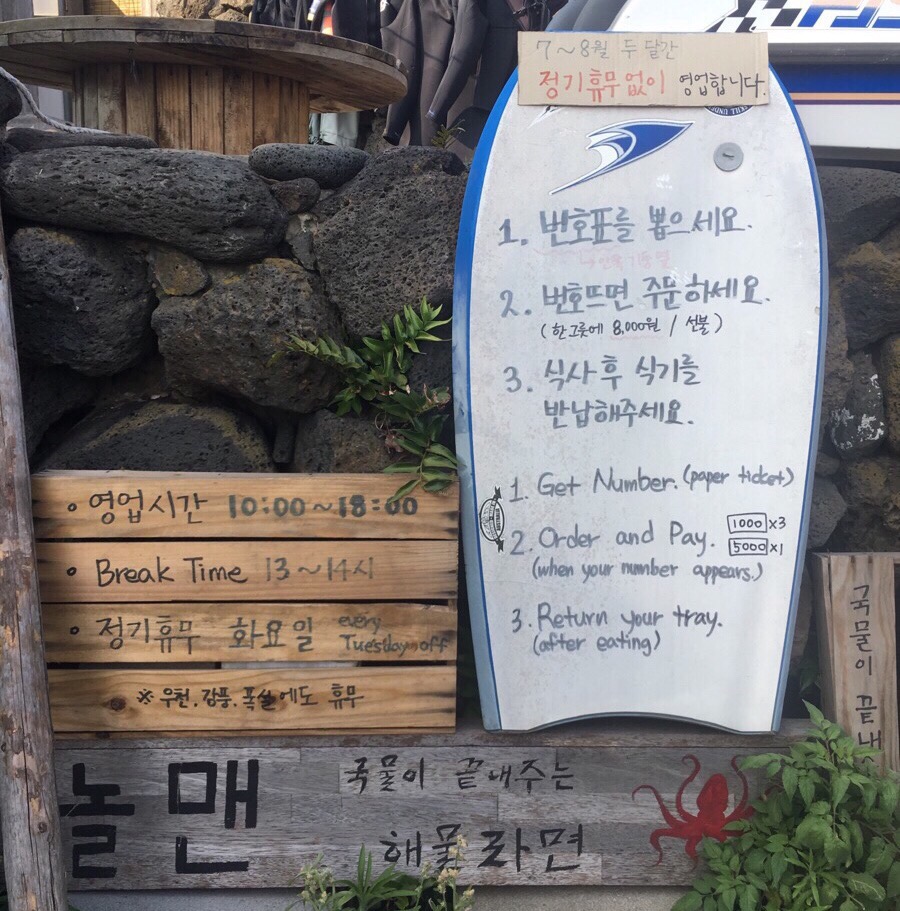 7~8월 두 달간
정기휴무 없이 영업합니다.
1. 번호표를 뽑으세요.
2. 번호뜨면 주문하세요.
(한그릇에 8,000원 / 선불)
3. 식사 후 식기를
반납해주세요.
1. Get Number. (paper ticket)
2. Order and Pay. 1000 x3
5000 x1
(when your number appears.)
3. Return your tray.
(after eating)
• 영업시간 10:00~18:00
• Break Time 13~14시
• 정기휴무 화요일 every
Tuesday off
※ 우천. 강풍. 폭설에도 휴무
놀맨 국물이 끝내주는
해물라면
국물이 끝내